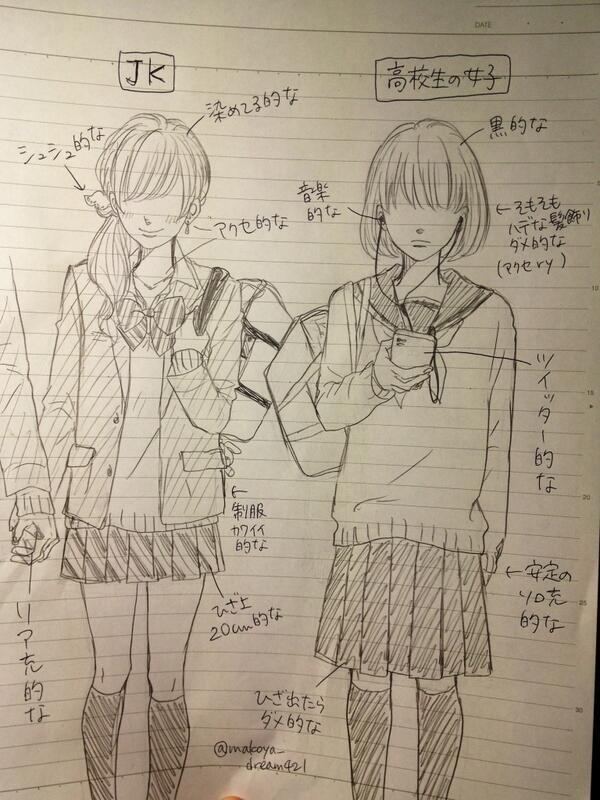 DATE
JK
高校生の女子
染めてる的な
黒的な
シュシュ的な
アクセ的な
音楽
的な
←そもそも
ハデな髪飾り
ダメ的な
(アクセry)
ツイッター的な
←
制服
カワイイ
的な
ひざ上
20cm的な
←安定の
ソロ充
的な
リア充的な
ひざ出たら
ダメ的な
@makoya_
dream421
10
15
20
25
30